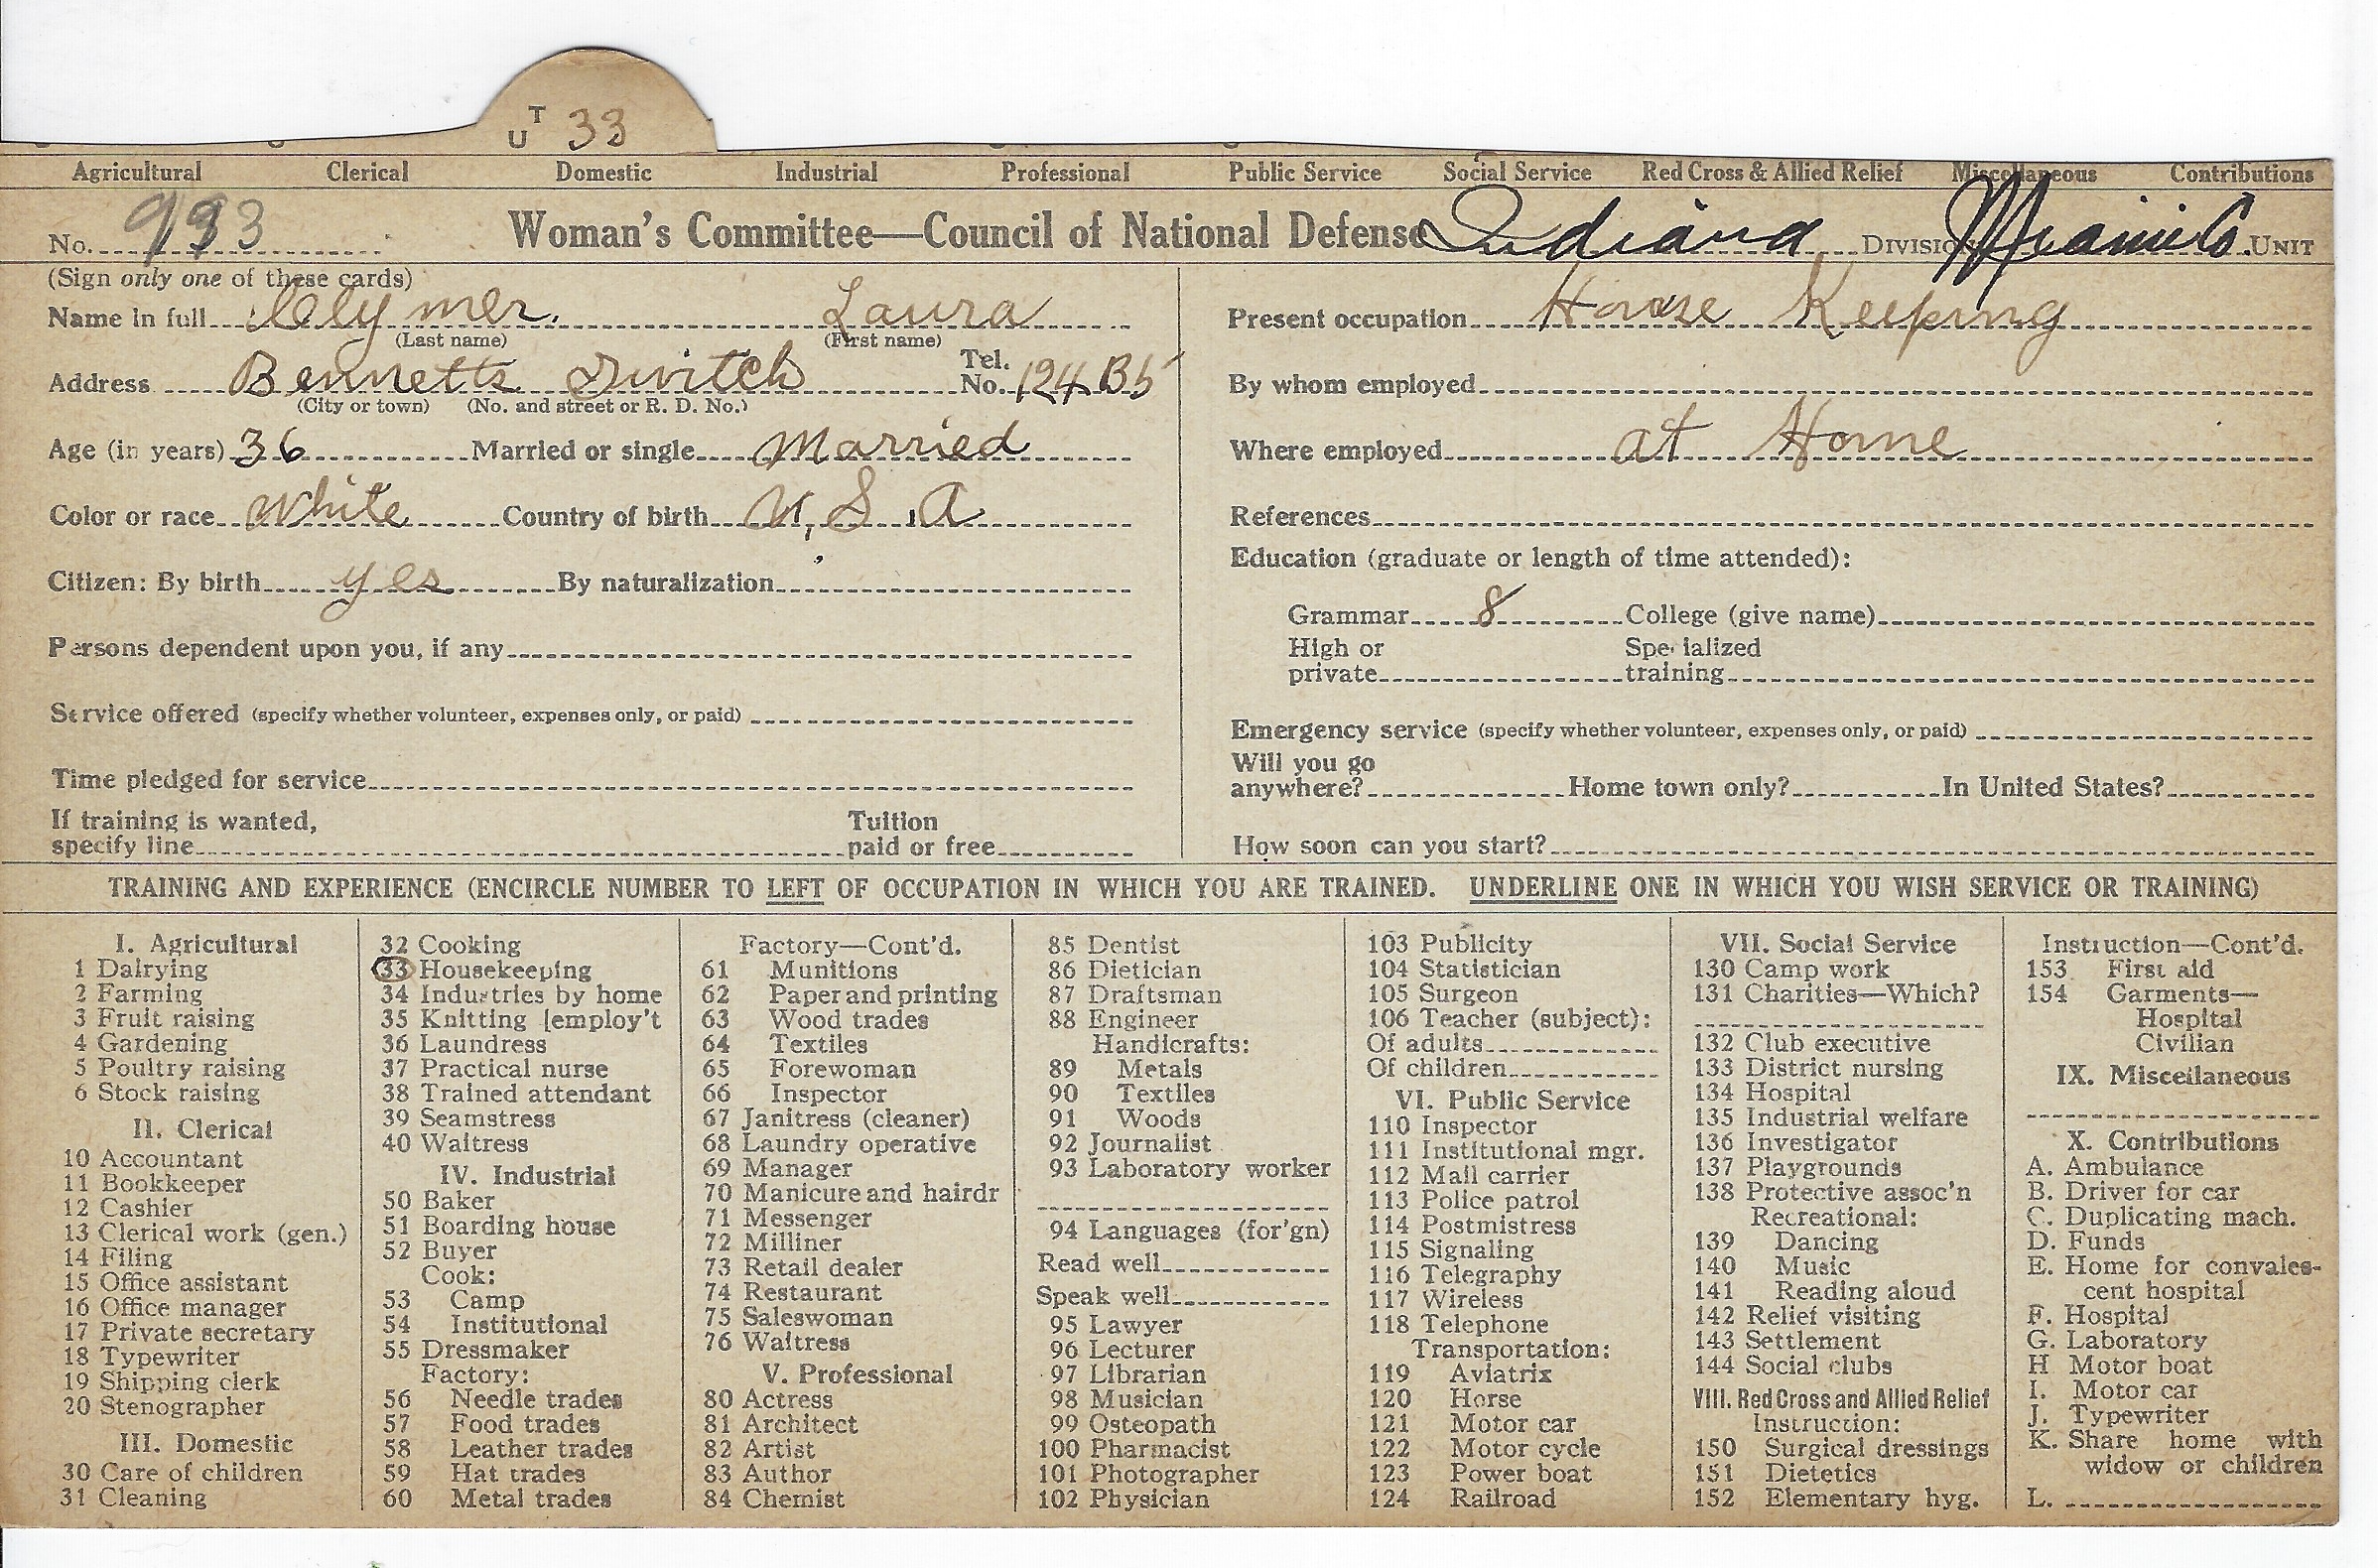 U T 33
Agricultural Clerical Domestic Industrial Professional Public Service Social Service Red Cross & Allied Relief Miscellaneous Contributions
No. 933 Woman's Committee—Council of National Defense Indiana Division Miami Co. Unit
(Sign only one of these cards)
Name in full Clymer, Laura
(Last name) (First name)
Address Bennetts Switch Tel. No. 124 B5
(City or town) (No. and street or R. D. No.)
Age (in years) 36 Married or single Married
Color or race White Country of birth U, S, A
Citizen: By birth yes By naturalization
Persons dependent upon you, if any
Service offered (specify whether volunteer, expenses only, or paid)
Time pledged for service
If training is wanted, specify line Tuition paid or free
Present occupation House Keeping
By whom employed
Where employed at Home
References
Education (graduate or length of time attended):
Grammar 8 College (give name)
High or private Specialized training
Emergency service (specify whether volunteer, expenses only, or paid)
Will you go anywhere? Home town only? In United States?
How soon can you start?
TRAINING AND EXPERIENCE (ENCIRCLE NUMBER TO LEFT OF OCCUPATION IN WHICH YOU ARE TRAINED. UNDERLINE ONE IN WHICH YOU WISH SERVICE OR TRAINING)
I. Agricultural
1 Dairying
2 Farming
3 Fruit raising
4 Gardening
5 Poultry raising
6 Stock raising
II. Clerical
10 Accountant
11 Bookkeeper
12 Cashier
13 Clerical work (gen.)
14 Filing
15 Office assistant
16 Office manager
17 Private secretary
18 Typewriter
19 Shipping clerk
20 Stenographer
III. Domestic
30 Care of children
31 Cleaning
32 Cooking
33 Housekeeping
34 Industries by home
35 Knitting [employ't
36 Laundress
37 Practical nurse
38 Trained attendant
39 Seamstress
40 Waitress
IV. Industrial
50 Baker
51 Boarding house
52 Buyer
Cook:
53 Camp
54 Institutional
55 Dressmaker
Factory:
56 Needle trades
57 Food trades
58 Leather trades
59 Hat trades
60 Metal trades
Factory—Cont'd.
61 Munitions
62 Paper and printing
63 Wood trades
64 Textiles
65 Forewoman
66 Inspector
67 Janitress (cleaner)
68 Laundry operative
69 Manager
70 Manicure and hairdr
71 Messenger
72 Milliner
73 Retail dealer
74 Restaurant
75 Saleswoman
76 Waitress
V. Professional
80 Actress
81 Architect
82 Artist
83 Author
84 Chemist
85 Dentist
86 Dietician
87 Draftsman
88 Engineer
Handicrafts:
89 Metals
90 Textiles
91 Woods
92 Journalist
93 Laboratory worker
94 Languages (for'gn)
Read well
Speak well
95 Lawyer
96 Lecturer
97 Librarian
98 Musician
99 Osteopath
100 Pharmacist
101 Photographer
102 Physician
103 Publicity
104 Statistician
105 Surgeon
106 Teacher (subject):
Of adults
Of children
VI. Public Service
110 Inspector
111 Institutional mgr.
112 Mail carrier
113 Police patrol
114 Postmistress
115 Signaling
116 Telegraphy
117 Wireless
118 Telephone
Transportation:
119 Aviatrix
120 Horse
121 Motor car
122 Motor cycle
123 Power boat
124 Railroad
VII. Social Service
130 Camp work
131 Charities—Which?
132 Club executive
133 District nursing
134 Hospital
135 Industrial welfare
136 Investigator
137 Playgrounds
138 Protective assoc'n
Recreational:
139 Dancing
140 Music
141 Reading aloud
142 Relief visiting
143 Settlement
144 Social clubs
VIII. Red Cross and Allied Relief
Instruction:
150 Surgical dressings
151 Dietetics
152 Elementary hyg.
Instruction—Cont'd.
153 First aid
154 Garments—
Hospital
Civilian
IX. Miscellaneous
X. Contributions
A. Ambulance
B. Driver for car
C. Duplicating mach.
D. Funds
E. Home for convales-
cent hospital
F. Hospital
G. Laboratory
H Motor boat
I. Motor car
J. Typewriter
K. Share home with
widow or children
L.